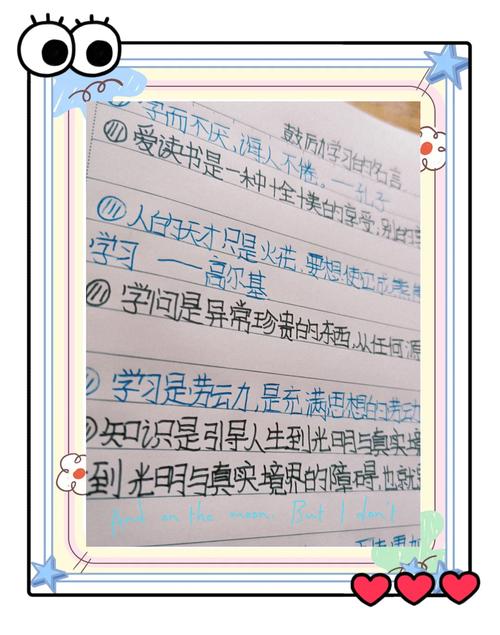 鼓厉学习的名言
学而不厌,诲人不倦。——孔子
爱读书是一种十全十美的享受;别的享
人的天才只是火花,要想使它成熊熊
学习 ——高尔基
学问是异常珍贵的东西,从任何源
学习是劳动力,是充满思想的劳动力
知识是引导人生到光明与真实境
到光明与真实境界的障碍,也就是
And on the moon. But I don't